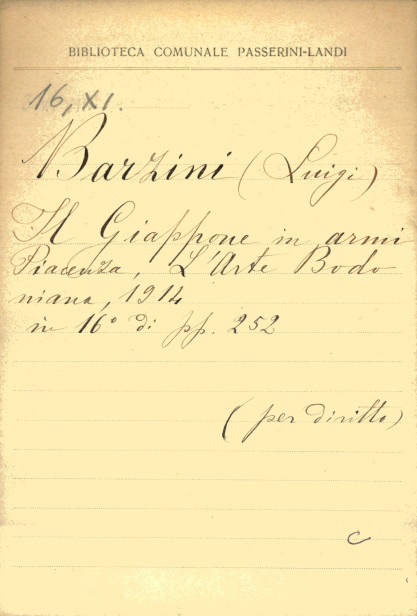 BIBLIOTECA COMUNALE PASSERINI-LANDI
16, XI.
Barzini (Luigi)
Il Giappone in armi
Piacenza, L'Arte Bodo
niana, 1914
in 16° di pp. 252
(per diritto)
C